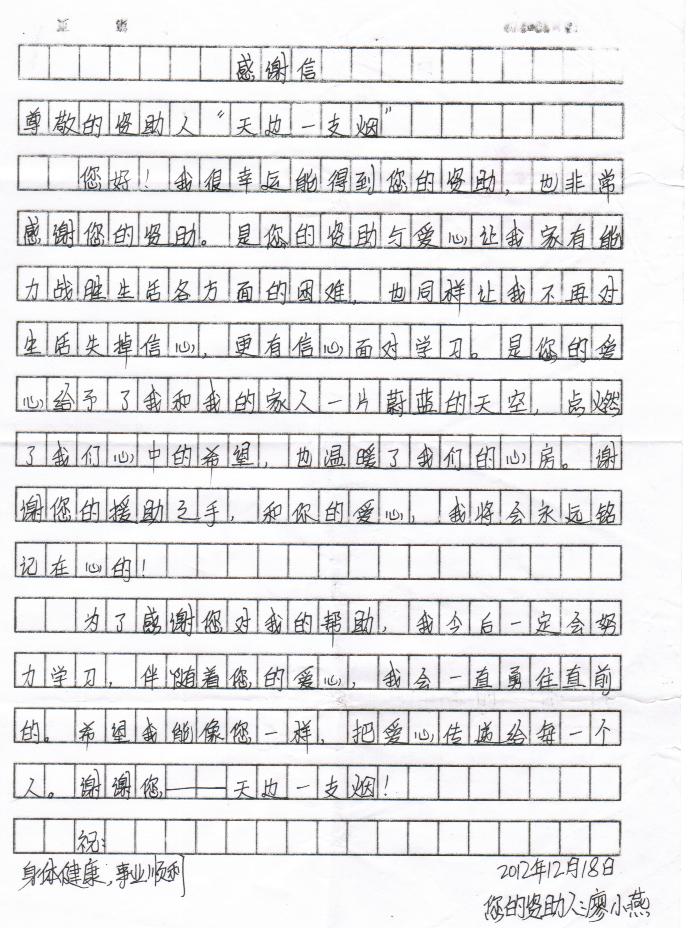 感谢信
尊敬的资助人“天边一支烟”
您好！我很幸运能得到您的资助，也非常
感谢您的资助。是您的资助与爱心让我家有能
力战胜生活各方面的困难，也同样让我不再对
生活失掉信心，更有信心面对学习。是您的爱
心给予了我和我的家人一片蔚蓝的天空，点燃
了我们心中的希望，也温暖了我们的心房。谢
谢您的援助之手，和你的爱心，我将会永远铭
记在心的！
为了感谢您对我的帮助，我今后一定会努
力学习，伴随着您的爱心，我会一直勇往直前
的。希望我能像您一样，把爱心传递给每一个
人。谢谢您——天边一支烟！
祝：
身体健康，事业顺利
2012年12月18日
您的资助人：廖小燕